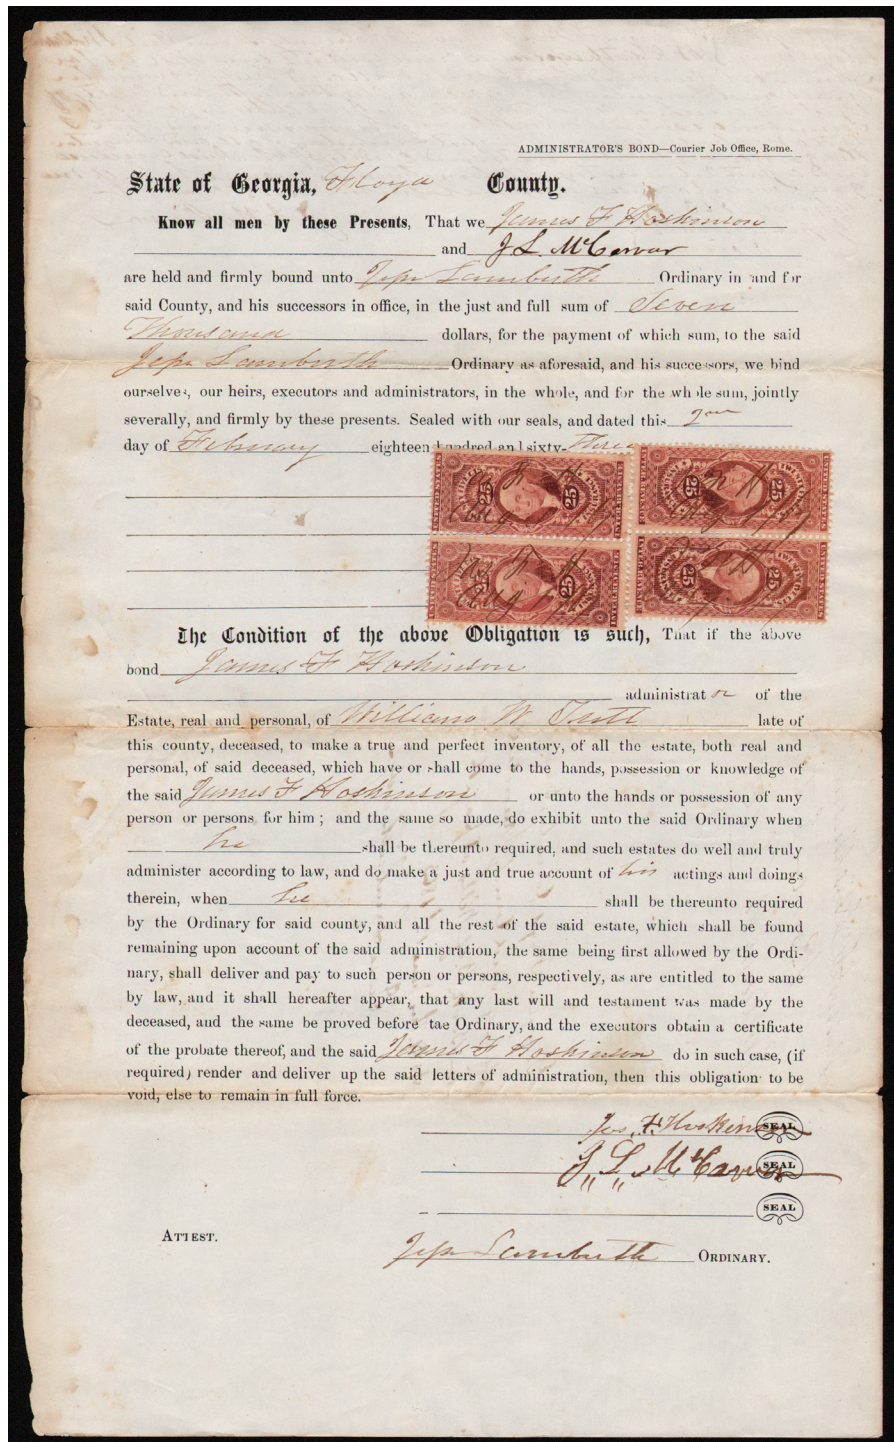 ADMINISTRATOR'S BOND—Courier Job Office, Rome.
State of Georgia, Floyd County.
Know all men by these Presents, That we James F Hoskinson
and J L. McCarver
are held and firmly bound unto Jesse Lamberth Ordinary in and for
said County, and his successors in office, in the just and full sum of Seven
Thousand dollars, for the payment of which sum, to the said
Jesse Lamberth Ordinary as aforesaid, and his successors, we bind
ourselves, our heirs, executors and administrators, in the whole, and for the whole sum, jointly
severally, and firmly by these presents. Sealed with our seals, and dated this
day of February eighteen hundred and sixty-Three
25 25 25 25
25 25 25 25
The Condition of the above Obligation is such, That if the above
bond James F Hoskinson
administrator of the
Estate, real and personal, of William W late of
this county, deceased, to make a true and perfect inventory, of all the estate, both real and
personal, of said deceased, which have or shall come to the hands, possession or knowledge of
the said James F Hoskinson or unto the hands or possession of any
person or persons for him; and the same so made, do exhibit unto the said Ordinary when
he shall be thereunto required, and such estates do well and truly
administer according to law, and do make a just and true account of his actings and doings
therein, when he shall be thereunto required
by the Ordinary for said county, and all the rest of the said estate, which shall be found
remaining upon account of the said administration, the same being first allowed by the Ordi-
nary, shall deliver and pay to such person or persons, respectively, as are entitled to the same
by law, and it shall hereafter appear, that any last will and testament was made by the
deceased, and the same be proved before tae Ordinary, and the executors obtain a certificate
of the probate thereof, and the said James F Hoskinson do in such case, (if
required) render and deliver up the said letters of administration, then this obligation to be
void, else to remain in full force.
Jas. F. Hoskinson SEAL
J. L. McCarver SEAL
SEAL
ATTEST.
Jesse Lamberth ORDINARY.